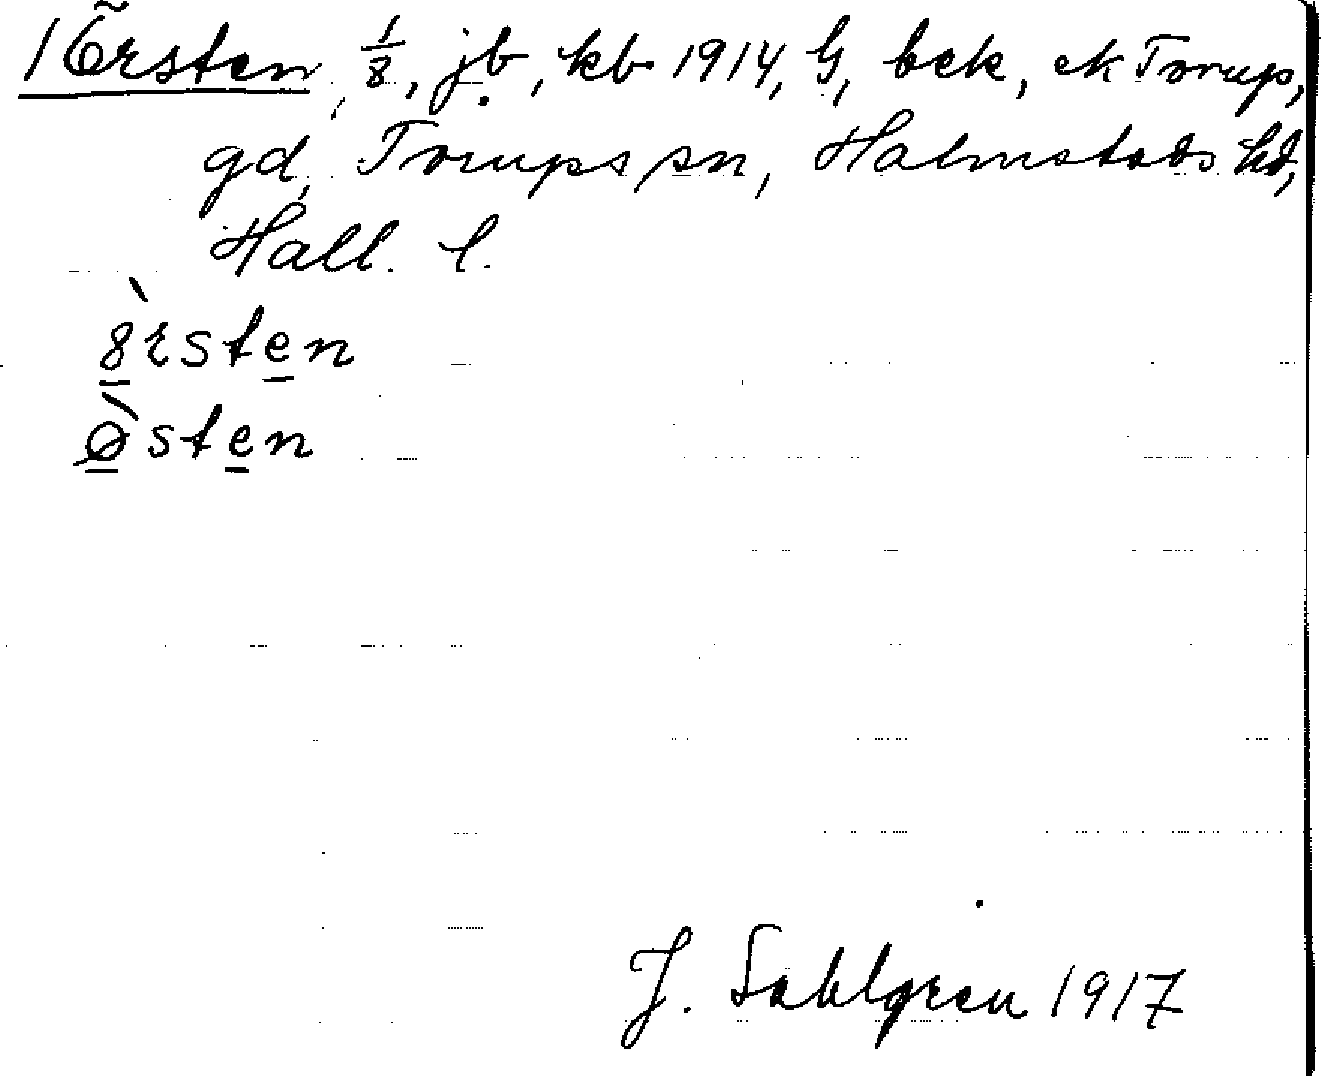 1 Õrsten, 1/8, jb, kb 1914, G, bek, ek Torup,
gd, Torups sn, Halmstads hd,
Hall. l.
8̀rsten
Ø̀sten
J. Sahlgren 1917